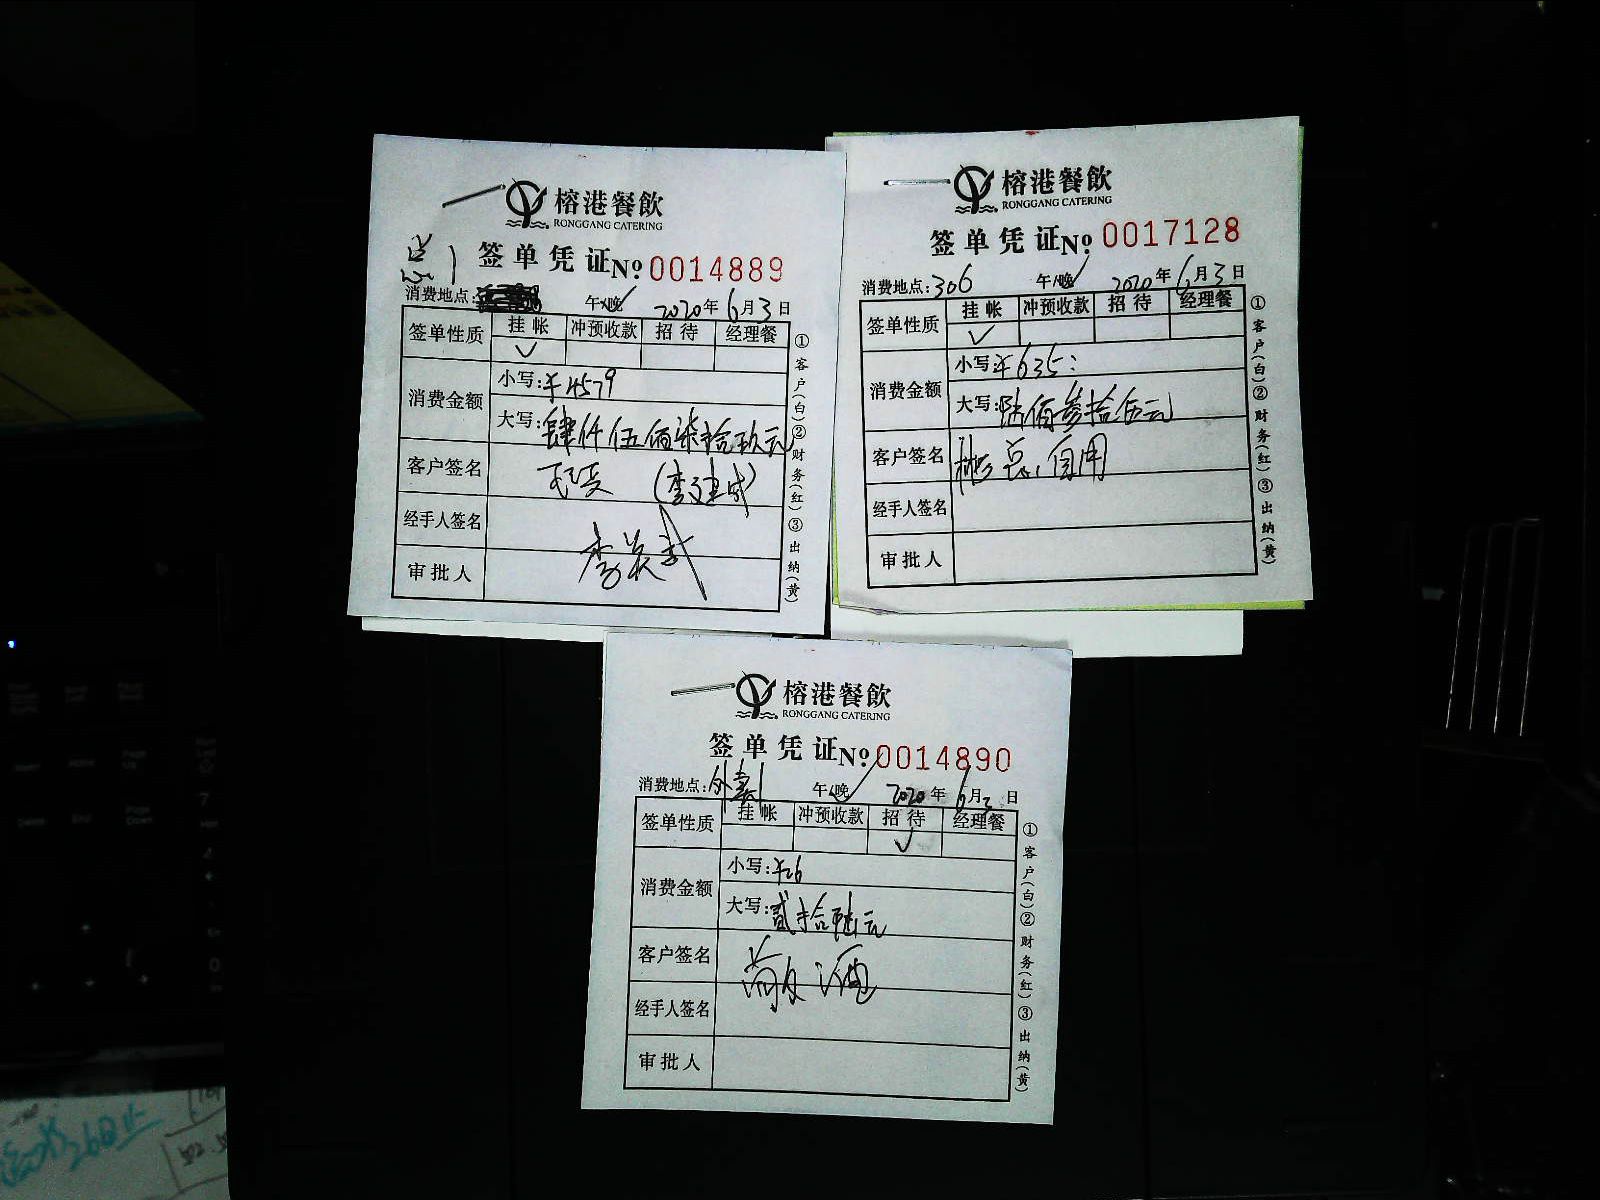 榕港餐飲
RONGGANG CATERING
签单凭证 No 0014889
消费地点: 午/晚✓ 2020年6月3日
签单性质 挂帐 冲预收款 招待 经理餐
✓
消费金额 小写:¥4579
大写:肆仟伍佰柒拾玖元
客户签名
经手人签名
审批人
①客户(白)②财务(红)③出纳(黄)
榕港餐飲
RONGGANG CATERING
签单凭证 No 0017128
消费地点:306 午/晚✓ 2020年6月3日
签单性质 挂帐 冲预收款 招待 经理餐
✓
消费金额 小写:¥635:
大写:陆佰叁拾伍元
客户签名 彬总自用
经手人签名
审批人
①客户(白)②财务(红)③出纳(黄)
榕港餐飲
RONGGANG CATERING
签单凭证 No 0014890
消费地点:外卖1 午/晚✓ 2020年6月3日
签单性质 挂帐 冲预收款 招待 经理餐
✓
消费金额 小写:¥26
大写:贰拾陆元
客户签名
经手人签名
审批人
①客户(白)②财务(红)③出纳(黄)